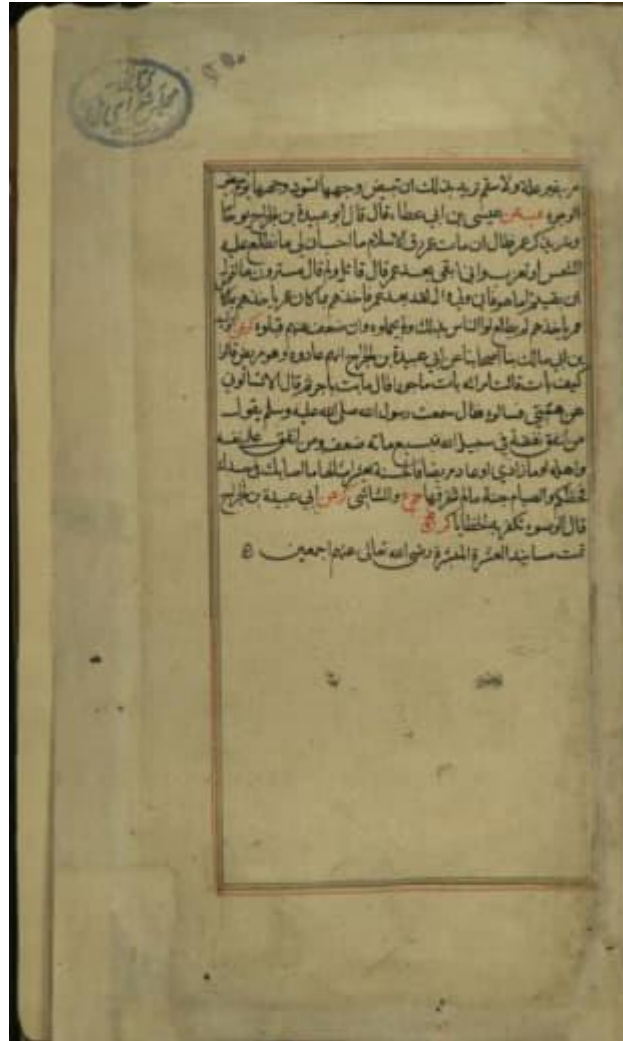 ٢٥٠
من غير علة ولا سقم تريد بذلك ان تبيض وجهها فسود وجهها يوم تبيض
الوجوه عن عيسى بن ابي عطاء قال قال ابو عبيدة بن الجراح يوما
وهو يذكر عمر فقال ان مات عمر رق الاسلام ما احب ان لي ما تطلع عليه
الشمس او تغرب واني ابقى بعد عمر قال قائل ولم قال سترون ما اقول
ان بقيتم اما هو فان ولي وال بعد عمر فاخذهم بما كان عمر ياخذهم به
لم يطع له الناس بذلك ولم يحملوه وان ضعف عنهم قتلوه
بن ابي مالك اصحابنا عن ابي عبيدة بن الجراح انهم عادوه وهو مريض فقالوا
كيف بات فقالت امراته بات ماجورا فقال ما بت باجر ثم قال الا تسالوني
عن فسالوه فقال سمعت رسول الله صلى الله عليه وسلم يقول
من انفق نفقة في سبيل الله فسبع مائة ضعف ومن انفق على نفسه
واهله او ماز اذى او عاد مريضا فالحسنة بعشر امثالها ما اصابك في جسدك
والصيام جنة ما لم يخرقها والشاشي ابي عبيدة بن الجراح
قال الوضوء يكفر به الخطايا كر
تمت مسانيد العشرة المبشرة رضى الله تعالى عنهم اجمعين